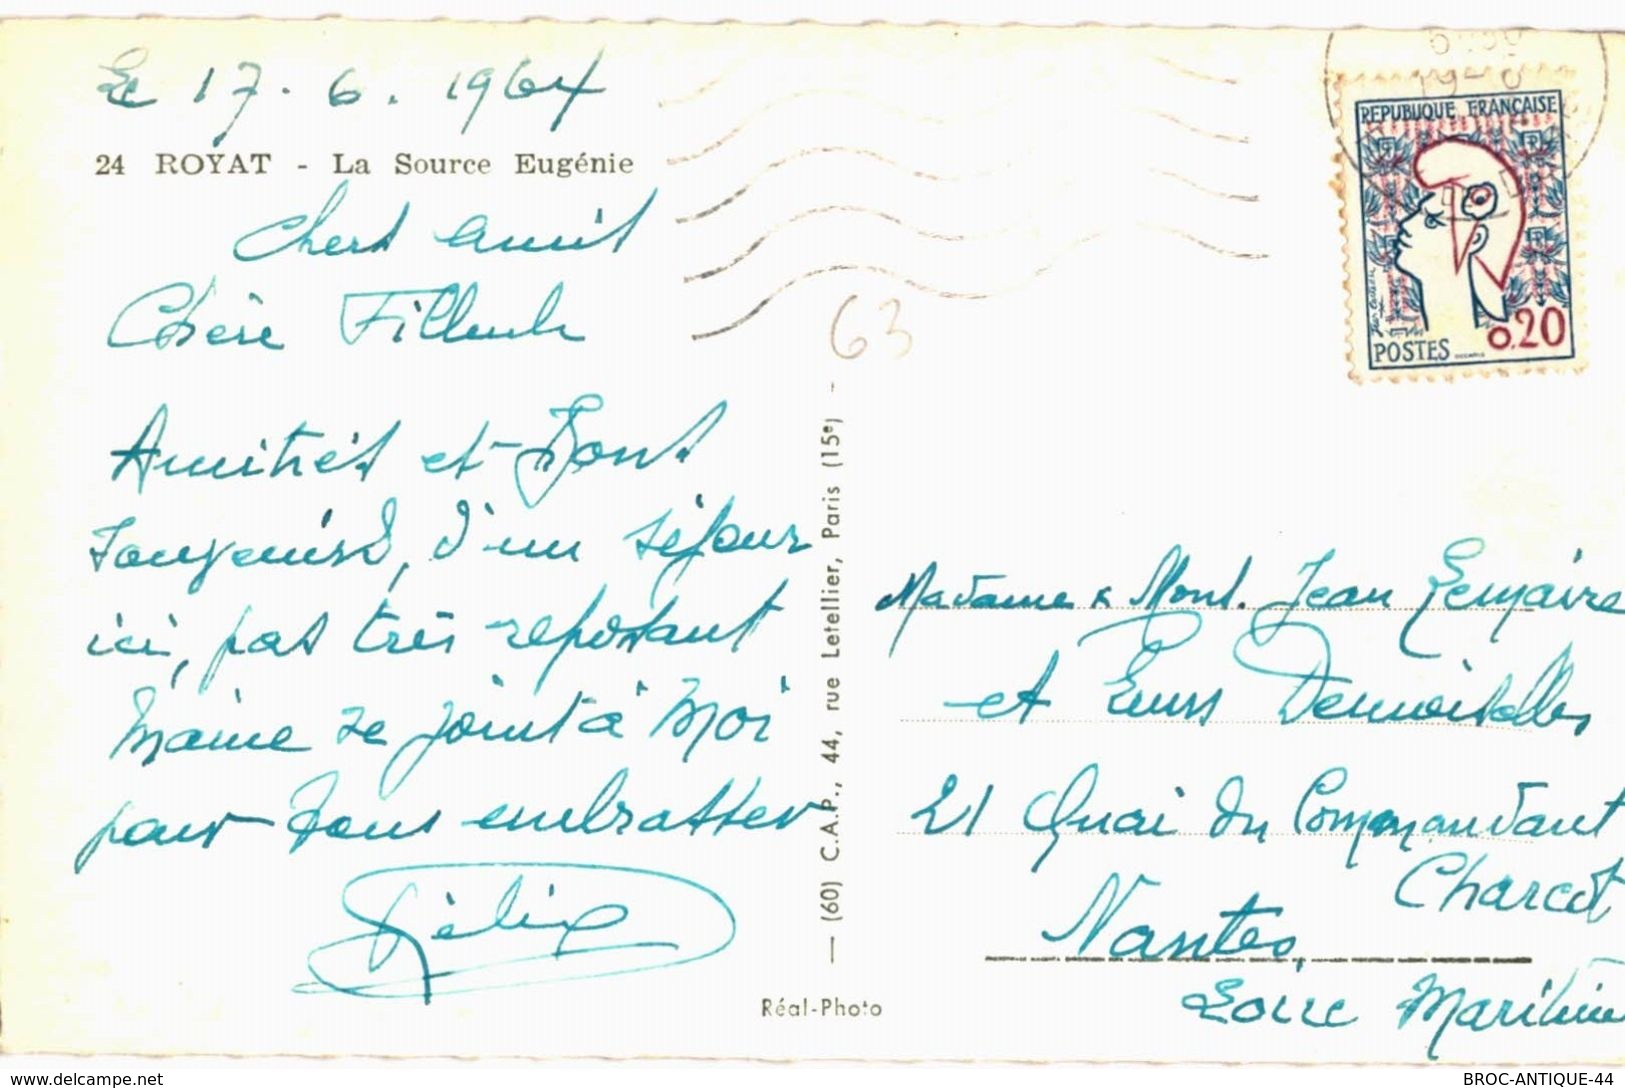 Le 17. 6. 1964
24 ROYAT - La Source Eugénie
Chers Amis
Chère Filleule
Amitiés et Bons
souvenirs, d'un séjour
ici, pas très reposant
Maine se joint à Moi
pour vous embrasser
Félix
63
— (60) C.A.P., 44, rue Letellier, Paris (15e) -
Réal-Photo
REPUBLIQUE FRANÇAISE
0,20
POSTES
Madame & Mons. Jean Lemaire
et leurs Demoiselles
21 Quai du Commandant
Charcot
Nantes,
Loire Maritime
https://www.delcampe.net
BROC-ANTIQUE-44